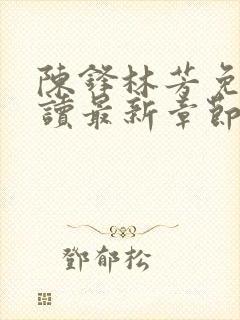 陳鋒林芳免
讀最新章節
鄧郁松